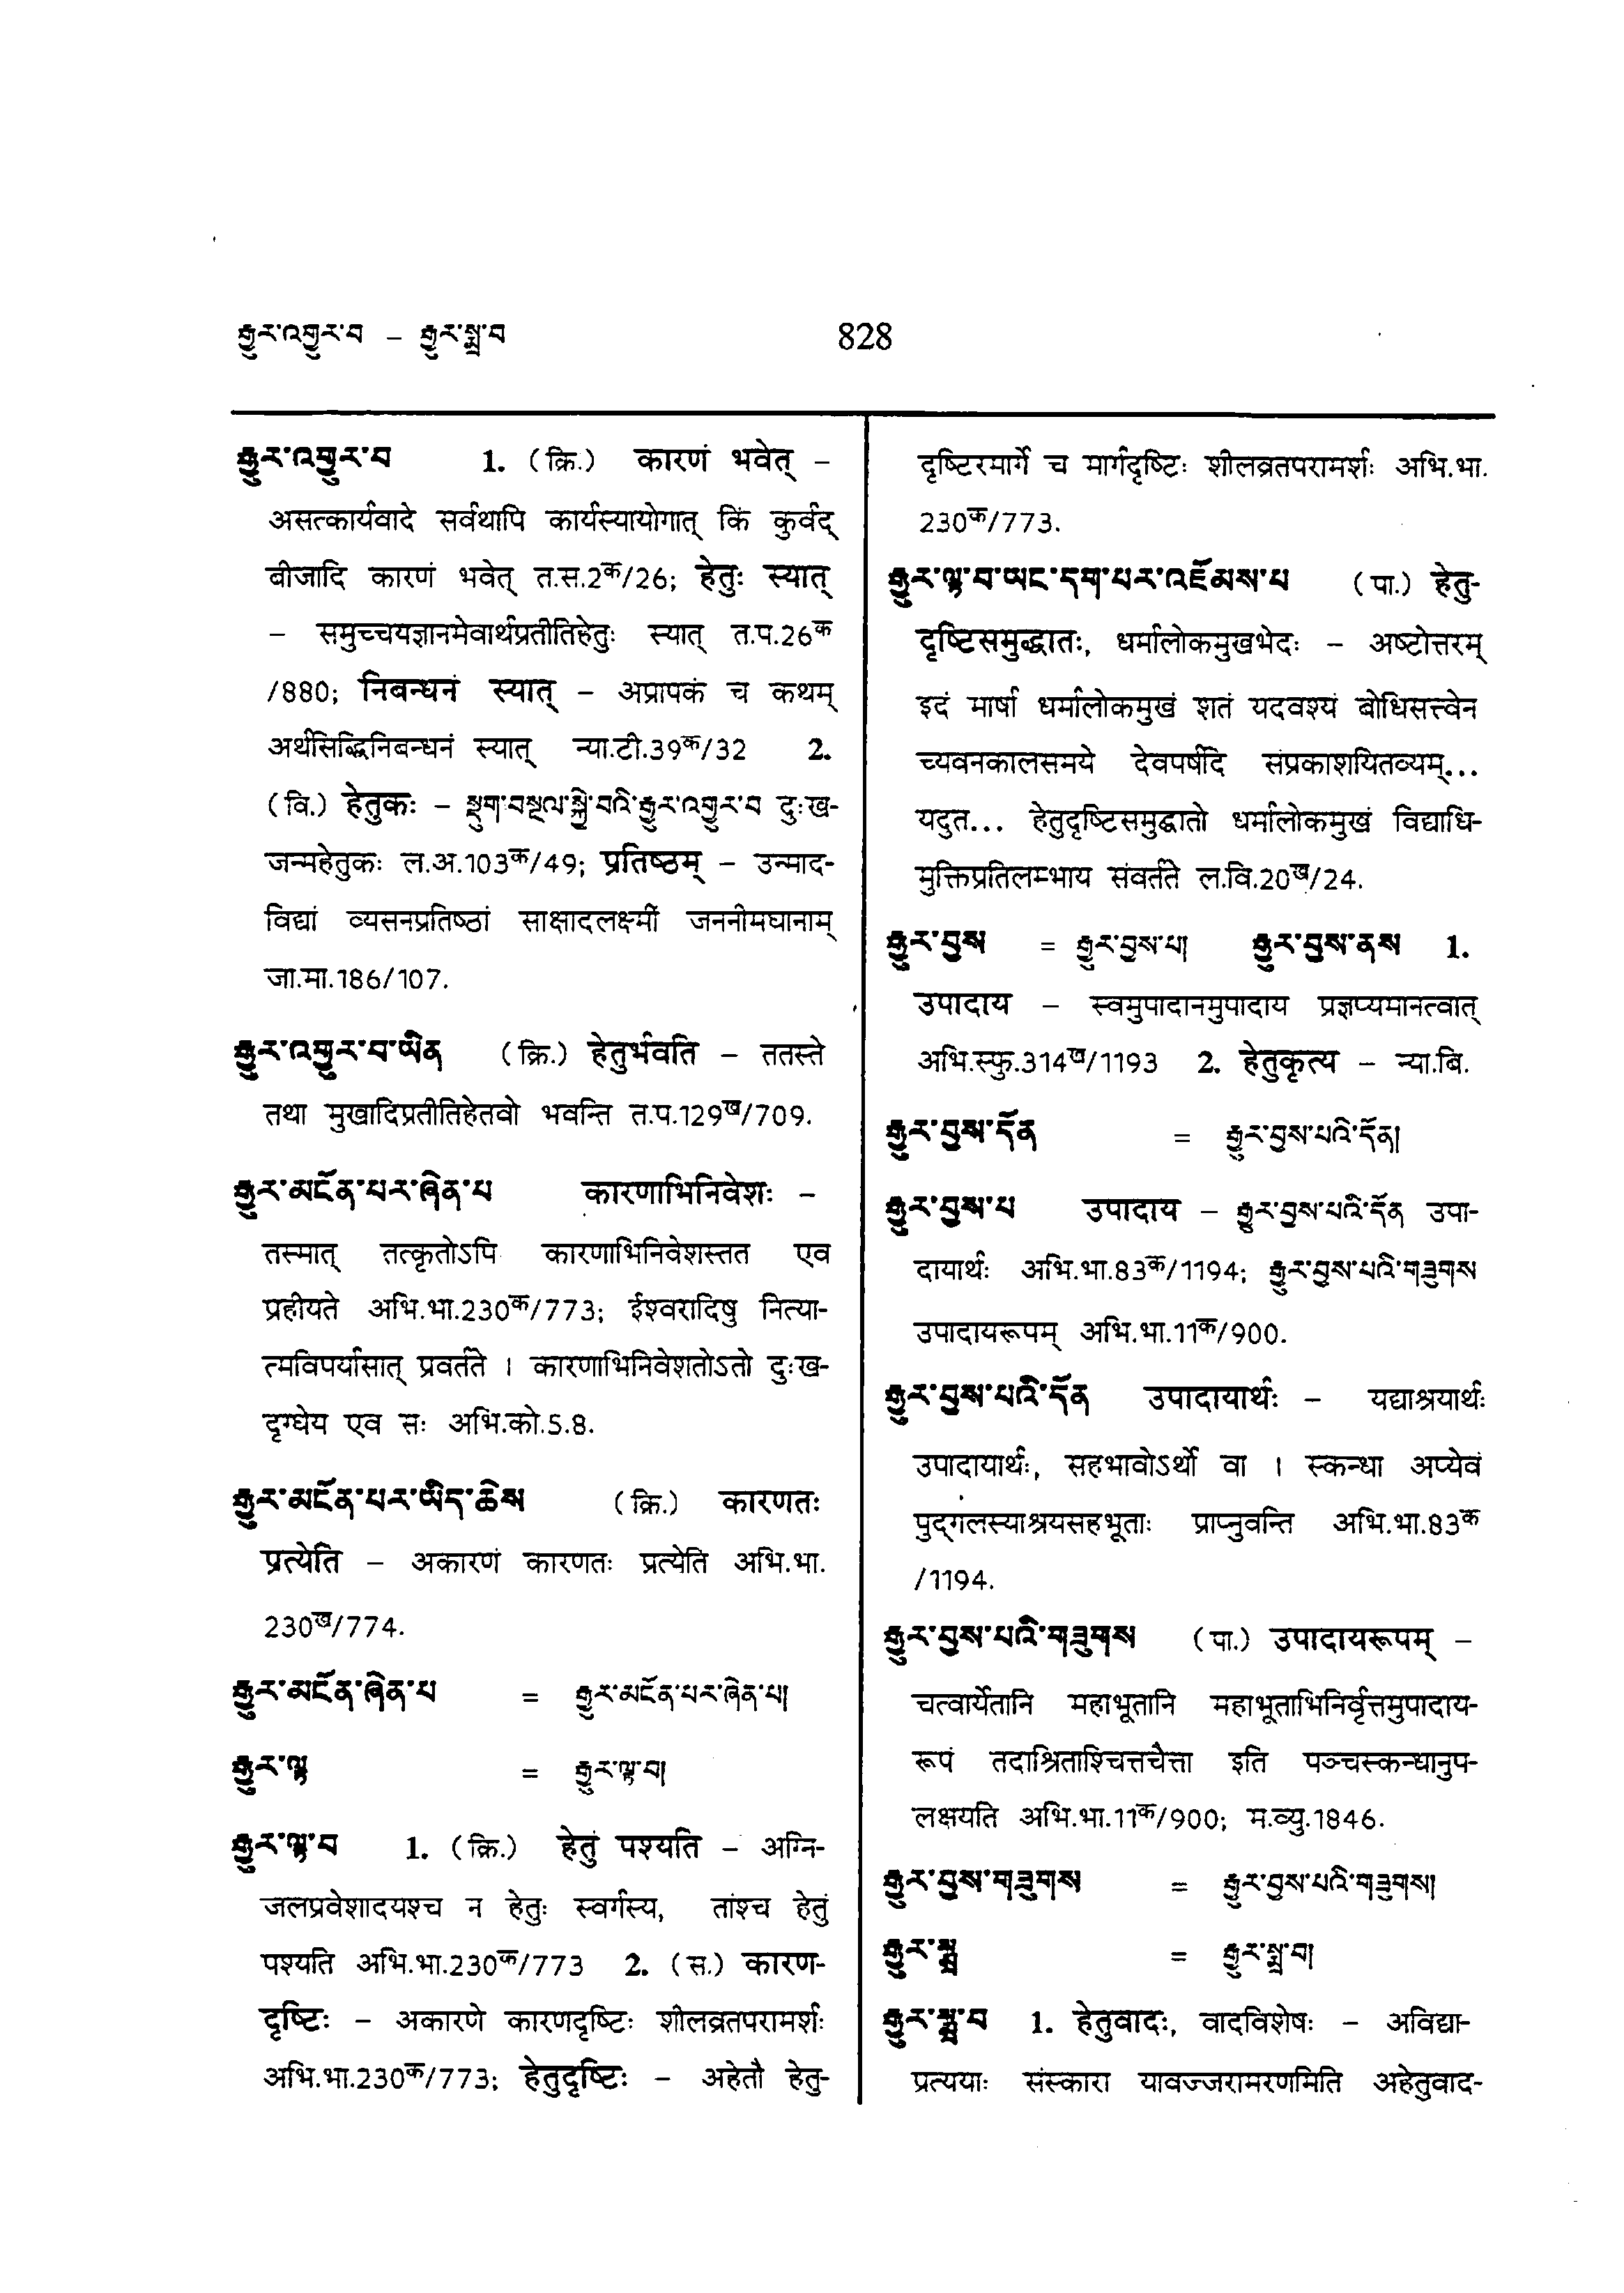 རྒྱུར་འགྱུར་བ – རྒྱུར་སྨྲ་བ
828
རྒྱུར་འགྱུར་བ 1. (क्रि.) कारणं भवेत् –
असत्कार्यवादे सर्वथापि कार्यस्यायोगात् किं कुर्वद्
बीजादि कारणं भवेत् त.स.2क/26; हेतुः स्यात्
– समुच्चयज्ञानमेवार्थप्रतीतिहेतुः स्यात् त.प.26क
/880; निबन्धनं स्यात् – अप्रापकं च कथम्
अर्थसिद्धिनिबन्धनं स्यात् न्या.टी.39क/32 2.
(वि.) हेतुकः – སྡུག་བསྔལ་སྐྱེ་བའི་རྒྱུར་འགྱུར་བ दुःख-
जन्महेतुकः ल.अ.103क/49; प्रतिष्ठम् – उन्माद-
विद्यां व्यसनप्रतिष्ठां साक्षादलक्ष्मीं जननीमघानाम्
जा.मा.186/107.
རྒྱུར་འགྱུར་བ་ཡིན (क्रि.) हेतुर्भवति – ततस्ते
तथा मुखादिप्रतीतिहेतवो भवन्ति त.प.129ख/709.
རྒྱུར་མངོན་པར་ཞེན་པ कारणाभिनिवेशः –
तस्मात् तत्कृतोऽपि कारणाभिनिवेशस्तत एव
प्रहीयते अभि.भा.230क/773; ईश्वरादिषु नित्या-
त्मविपर्यासात् प्रवर्तते । कारणाभिनिवेशतोऽतो दुःख-
दृग्घेय एव सः अभि.को.5.8.
རྒྱུར་མངོན་པར་ཡིད་ཆེས (क्रि.) कारणतः
प्रत्येति – अकारणं कारणतः प्रत्येति अभि.भा.
230ख/774.
རྒྱུར་མངོན་ཞེན་པ = རྒྱུར་མངོན་པར་ཞེན་པ།
རྒྱུར་ལྟ = རྒྱུར་ལྟ་བ།
རྒྱུར་ལྟ་བ 1. (क्रि.) हेतुं पश्यति – अग्नि-
जलप्रवेशादयश्च न हेतुः स्वर्गस्य, तांश्च हेतुं
पश्यति अभि.भा.230क/773 2. (स.) कारण-
दृष्टिः – अकारणे कारणदृष्टिः शीलव्रतपरामर्शः
अभि.भा.230क/773; हेतुदृष्टिः – अहेतौ हेतु-
दृष्टिरमार्गे च मार्गदृष्टिः शीलव्रतपरामर्शः अभि.भा.
230क/773.
རྒྱུར་ལྟ་བ་ཡང་དག་པར་འཇོམས་པ (पा.) हेतु-
दृष्टिसमुद्घातः, धर्मालोकमुखभेदः – अष्टोत्तरम्
इदं मार्षा धर्मालोकमुखं शतं यदवश्यं बोधिसत्त्वेन
च्यवनकालसमये देवपर्षदि संप्रकाशयितव्यम्...
यदुत... हेतुदृष्टिसमुद्घातो धर्मालोकमुखं विद्याधि-
मुक्तिप्रतिलम्भाय संवर्तते ल.वि.20ख/24.
རྒྱུར་བྱས = རྒྱུར་བྱས་པ། རྒྱུར་བྱས་ནས 1.
उपादाय – स्वमुपादानमुपादाय प्रज्ञप्यमानत्वात्
अभि.स्फु.314ख/1193 2. हेतुकृत्य – न्या.बि.
རྒྱུར་བྱས་དོན = རྒྱུར་བྱས་པའི་དོན།
རྒྱུར་བྱས་པ उपादाय – རྒྱུར་བྱས་པའི་དོན उपा-
दायार्थः अभि.भा.83क/1194; རྒྱུར་བྱས་པའི་གཟུགས
उपादायरूपम् अभि.भा.11क/900.
རྒྱུར་བྱས་པའི་དོན उपादायार्थः – यद्याश्रयार्थः
उपादायार्थः, सहभावोऽर्थो वा । स्कन्धा अप्येवं
पुद्गलस्याश्रयसहभूताः प्राप्नुवन्ति अभि.भा.83क
/1194.
རྒྱུར་བྱས་པའི་གཟུགས (पा.) उपादायरूपम् –
चत्वार्येतानि महाभूतानि महाभूताभिनिर्वृत्तमुपादाय-
रूपं तदाश्रिताश्चित्तचैत्ता इति पञ्चस्कन्धानुप-
लक्षयति अभि.भा.11क/900; म.व्यु.1846.
རྒྱུར་བྱས་གཟུགས = རྒྱུར་བྱས་པའི་གཟུགས།
རྒྱུར་སྨྲ = རྒྱུར་སྨྲ་བ།
རྒྱུར་སྨྲ་བ 1. हेतुवादः, वादविशेषः – अविद्या-
प्रत्ययाः संस्कारा यावज्जरामरणमिति अहेतुवाद-